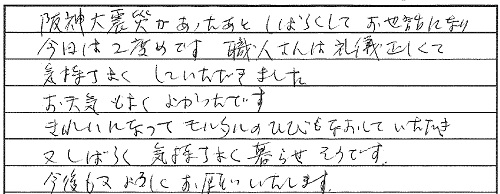 阪神大震災があったあと しばらくして お世話になり
今日は2度めです 職人さんは礼儀正しくて
気持ちよく していただきました
お天気もよく よかったです
きれいになって モルタルのひびもなおしていただき
又しばらく 気持ちよく暮らせそうです。
今後も又よろしくお願いいたします。